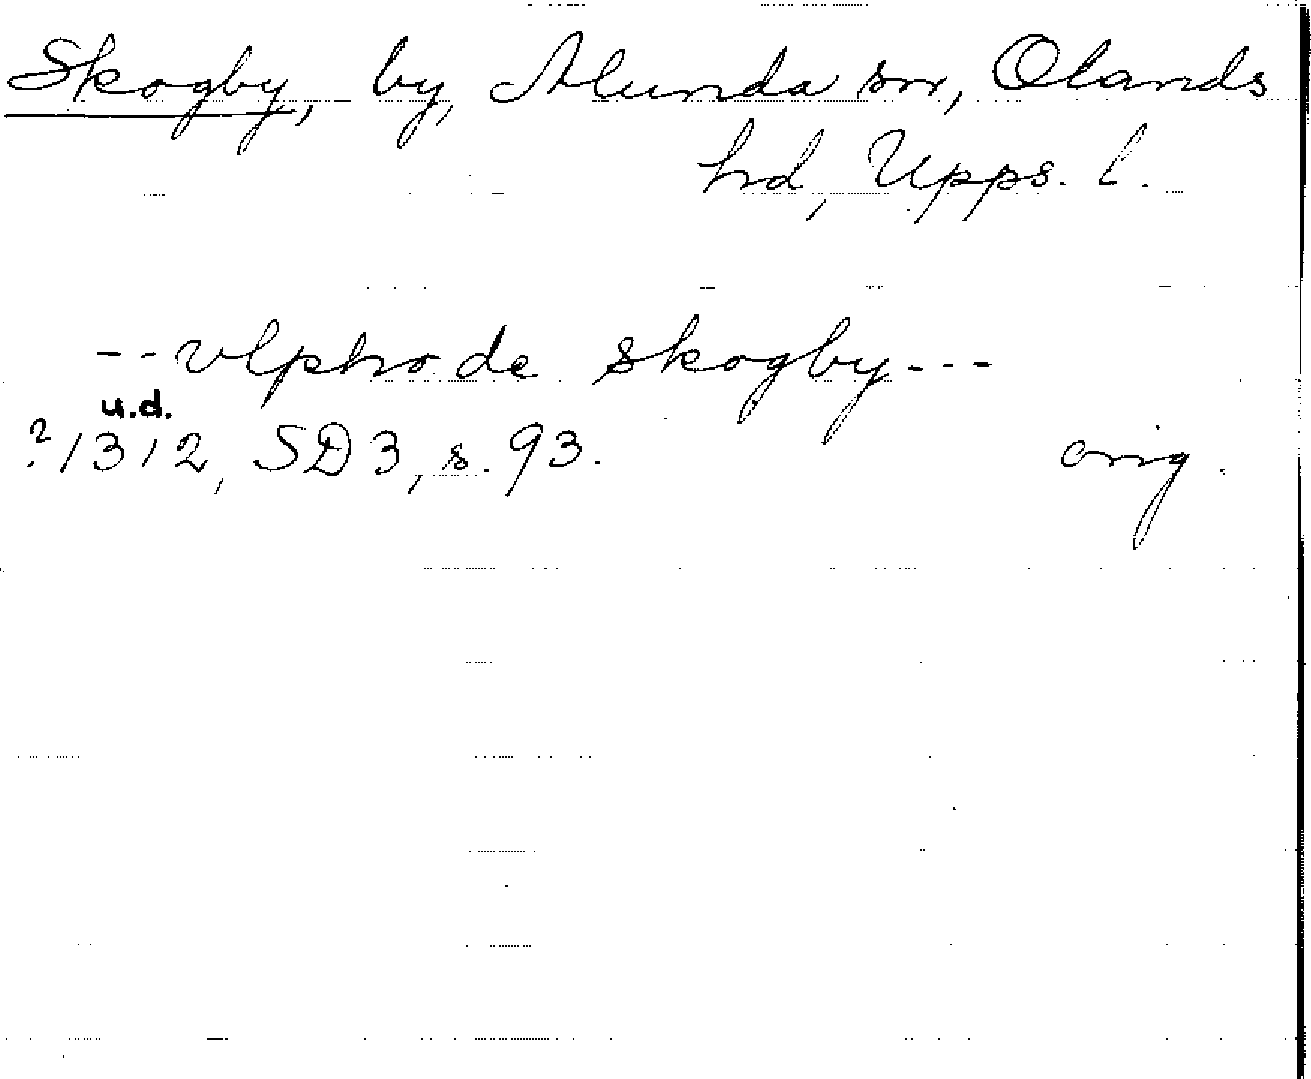 Skogby, by, Alunda sn, Olands
hd, Upps. l.
--vlphro de skogby---
u.d.
?1312, SD3, s. 93. orig.